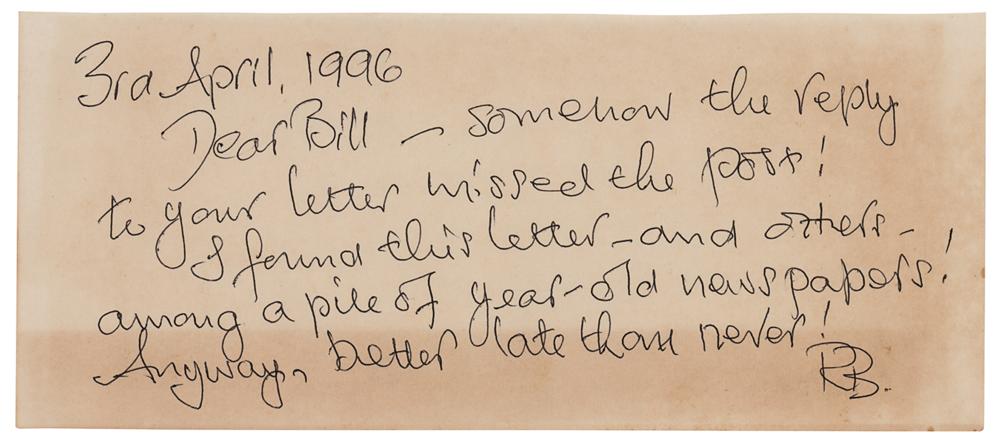 3rd April, 1996
Dear Bill – somehow the reply
to your letter missed the post!
I found this letter – and others –
among a pile of year-old newspapers!
Anyway, better late than never!
RB.